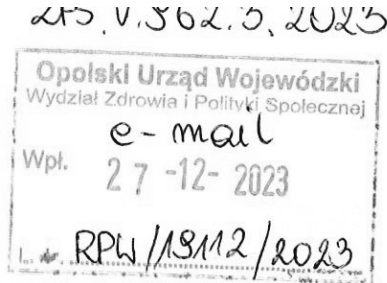 ZPS.V.962.3.2023
Opolski Urząd Wojewódzki
Wydział Zdrowia i Polityki Społecznej
e-mail
Wpł. 27 -12- 2023
RPW/19112/2023